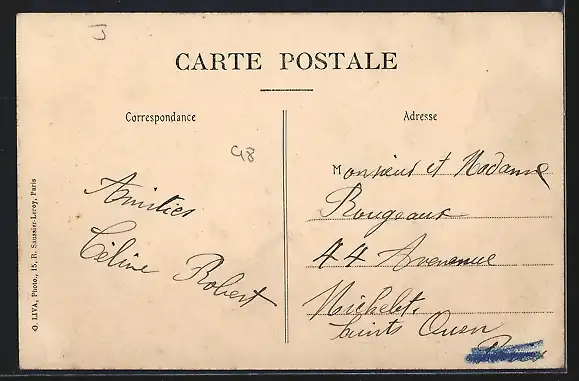 J
CARTE POSTALE
Correspondance
Adresse
98
Amitiés
Céline Robert
Monsieur et Madame
Rougeaux
44 Avenenue
Michelet.
Saints Ouen
O. LIVA, Photo., 15, R. Saussier-Leroy, Paris